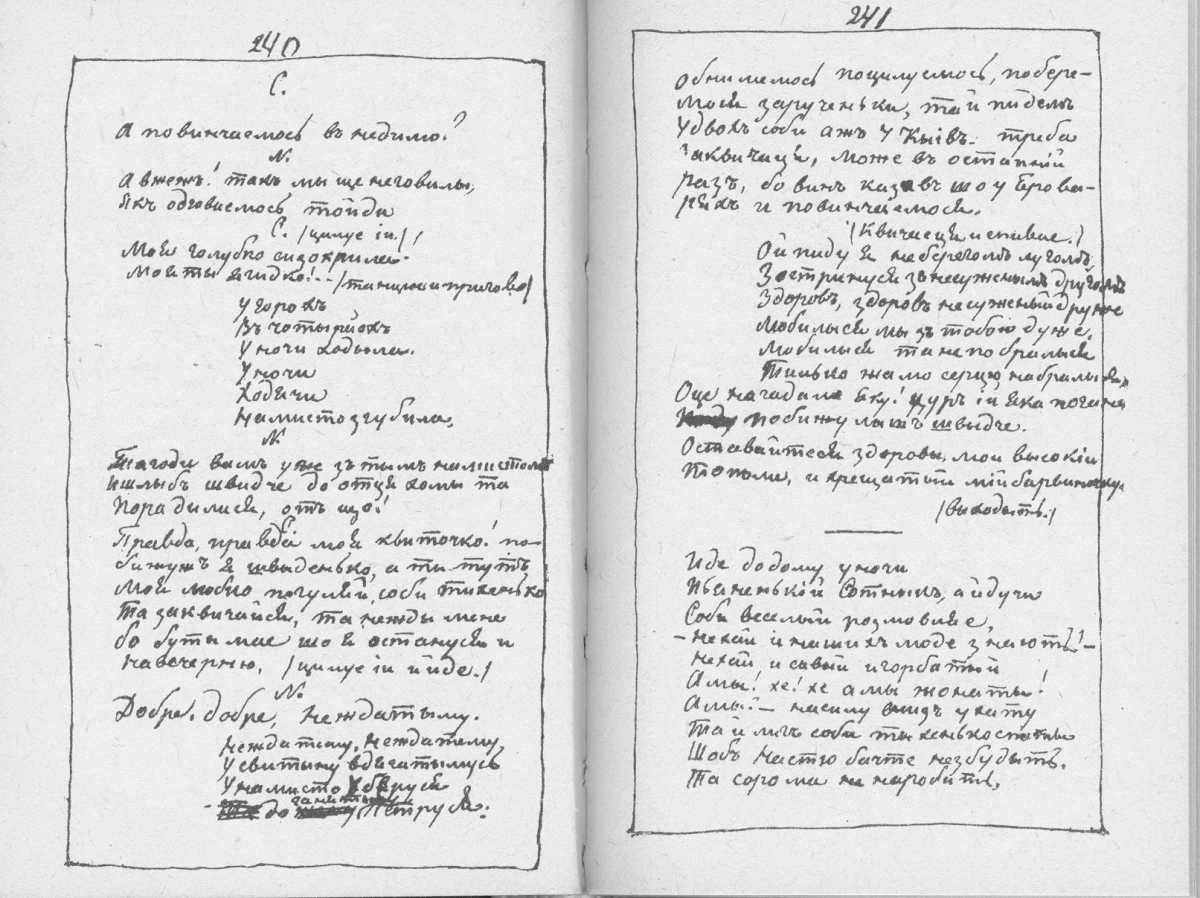 240
С.
А повинчаемось въ недилю?
N.
Авжежъ! такъ мы ще не говилы,
Якъ одговиемось тойди
С. /цилуе іи/!
Моя голубко сизокрила
Моя ты ягидко!-- /танцюючи приговор/
У горохъ
Въ чотырйохъ
Уночи ходыла.
Уночи
Ходячи
Намисто згубила,
N
Та годи вамъ уже зъ тымъ намистомъ
Ишлыбъ швидче до отця хомы та
Порадилися, отъ що!
С.
Правда, правда моя квиточко! по-
бижужъ я швыденько, а ти тутъ
Моя любко погуляй соби тихенько
Та заквичайся, та нежды мене
бо буты мае що я остануся и
на вечерню, /цилуе іи и йде./
N.
Добре, добре, неждатыму.
Неждатиму, неждатему,
У свитыну вдягатымусь
У намисто уберуся
до Петруся.
241
Обнимемось поцилуемось, побере-
мося зарученьки, тай пидемъ
Удвохъ соби ажъ у Кыівъ. треба
Заквичаця, може въ останній
разъ, бо винъ казавъ шо у Брова-
ряхъ и повинчаемося.
/Квичаеця и спивае./
Ой пиду я не берегомъ лугомъ
Зостринуся зъ несуженымъ другомъ
Здоровъ, здоровъ несуженый друже
Любилыся мы зъ тобою дуже.
Любилыся та не побралыся
Тилько жалю серцю набралыся,
Оце нагадала яку! цуръ ій яка погана
побижу лышъ швидче.
Оставайтеся здоровы мои высокіи
Тополи, и крещатый мій барвиночку.
/выходыть./
Иде додому уночи
Пьяненькій Сотныкъ, а йдучи
Соби веселый розмовляе,
- нехай и нашихъ люде знають! -
нехай, и сивый и горбатый
А мы! хе! хе а мы жонаты!
А мы! - насилу внизъ у хату
Та й лигъ соби тыхенько спаты
Шобъ Настю бачте незбудыть.
Та сорома не наробыть,